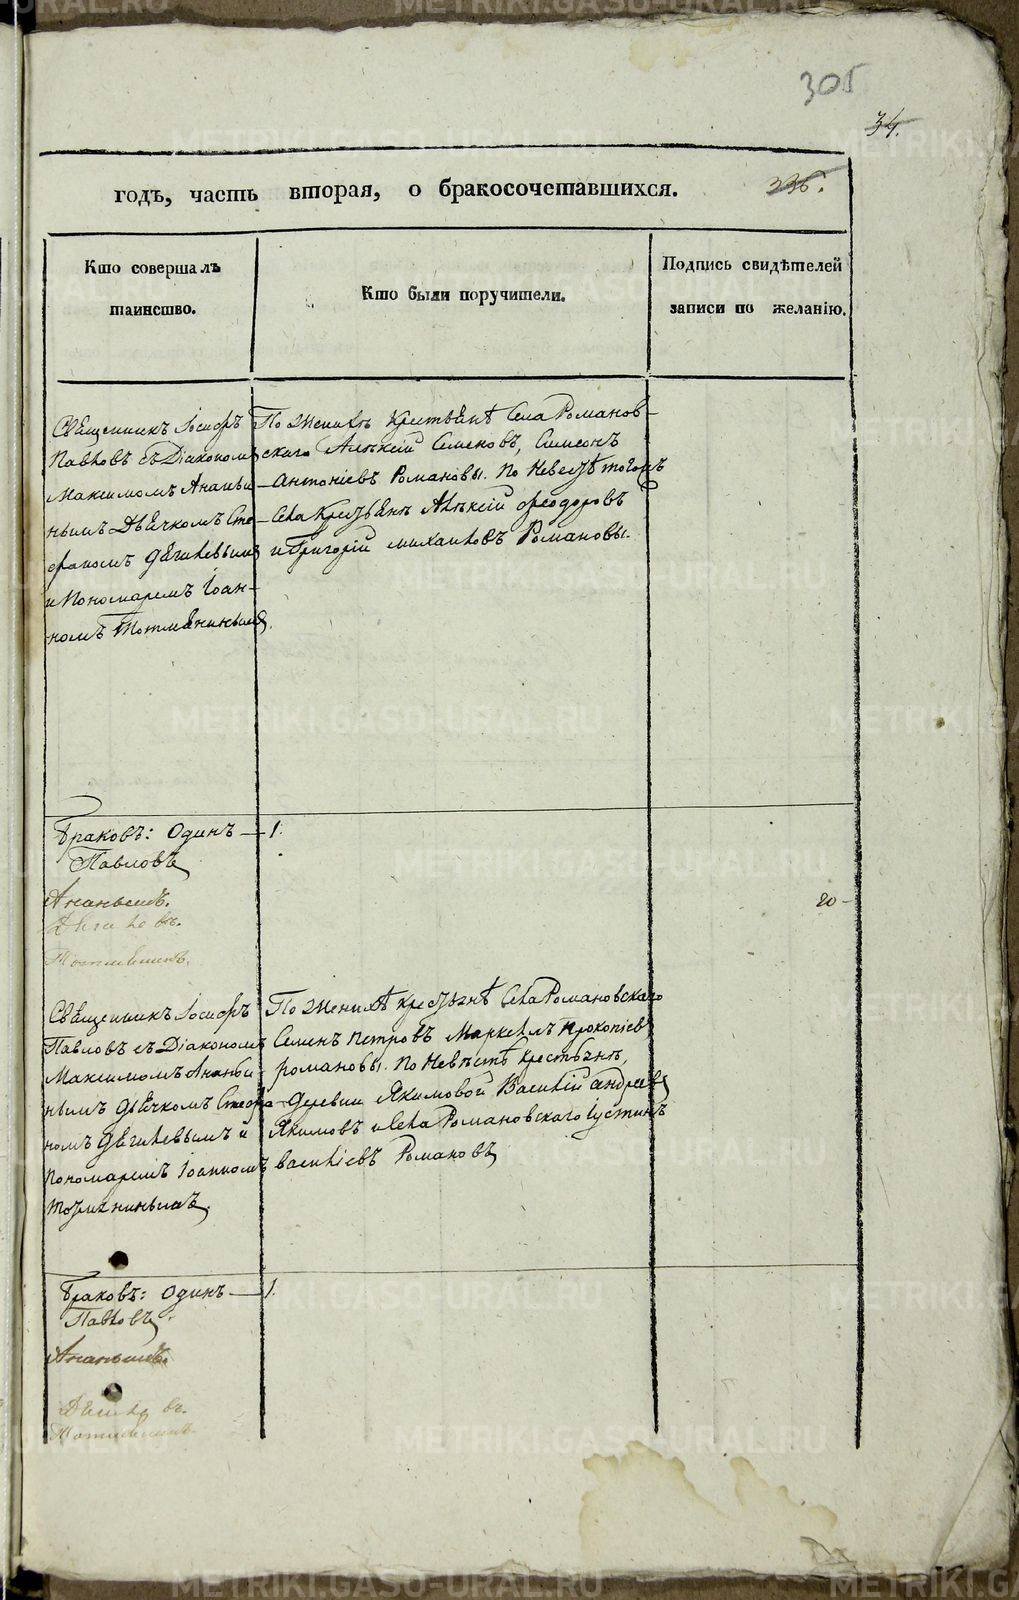 305
34.
годъ, часть вторая, о бракосочетавшихся.
336.
Кто совершалъ
таинство.
Кто были поручители.
Подпись свидѣтелей
записи по желанію.
Священникъ Іосифъ
Павловъ съ Діакономъ
Максимомъ Ананьи
нымъ Дьячкомъ Сте
фаномъ Дягилевымъ
и Пономаремъ Іоан-
номъ Тотмянинымъ.
По Женихѣ Крестьянѣ Села Романов-
скаго Алѣксій Семеновъ, Симеонъ
Антоніевъ Романовы. По Невестѣ тогожъ
Села Крестьянѣ Алѣксій Феодоровъ
и Григорій михаиловъ Романовы.
Браковъ: Одинъ — 1.
Павловъ
Ананьинъ.
Дягилевъ.
Тотмянинъ.
20-
Священникъ Іосифъ
Павловъ съ Діакономъ
Максимомъ Ананьи
нымъ Дьячкомъ Стефа
номъ Дягилевымъ и
Пономаремъ Іоанномъ
Тотмянинымъ.
По Женихѣ крестьянѣ Села Романовскаго
Семенъ Петровъ Маркелъ Прокопіевъ
романовы. По Невѣстѣ Крестьянѣ,
Деревни Якимовой Василій андреевъ
Якимовъ и Села Романовскаго Іустинъ
василіевъ Романовъ
Браковъ: Одинъ — 1.
Павловъ
Ананьинъ.
Дягилевъ.
Тотмянинъ.
METRIKI.GASO-URAL.RU